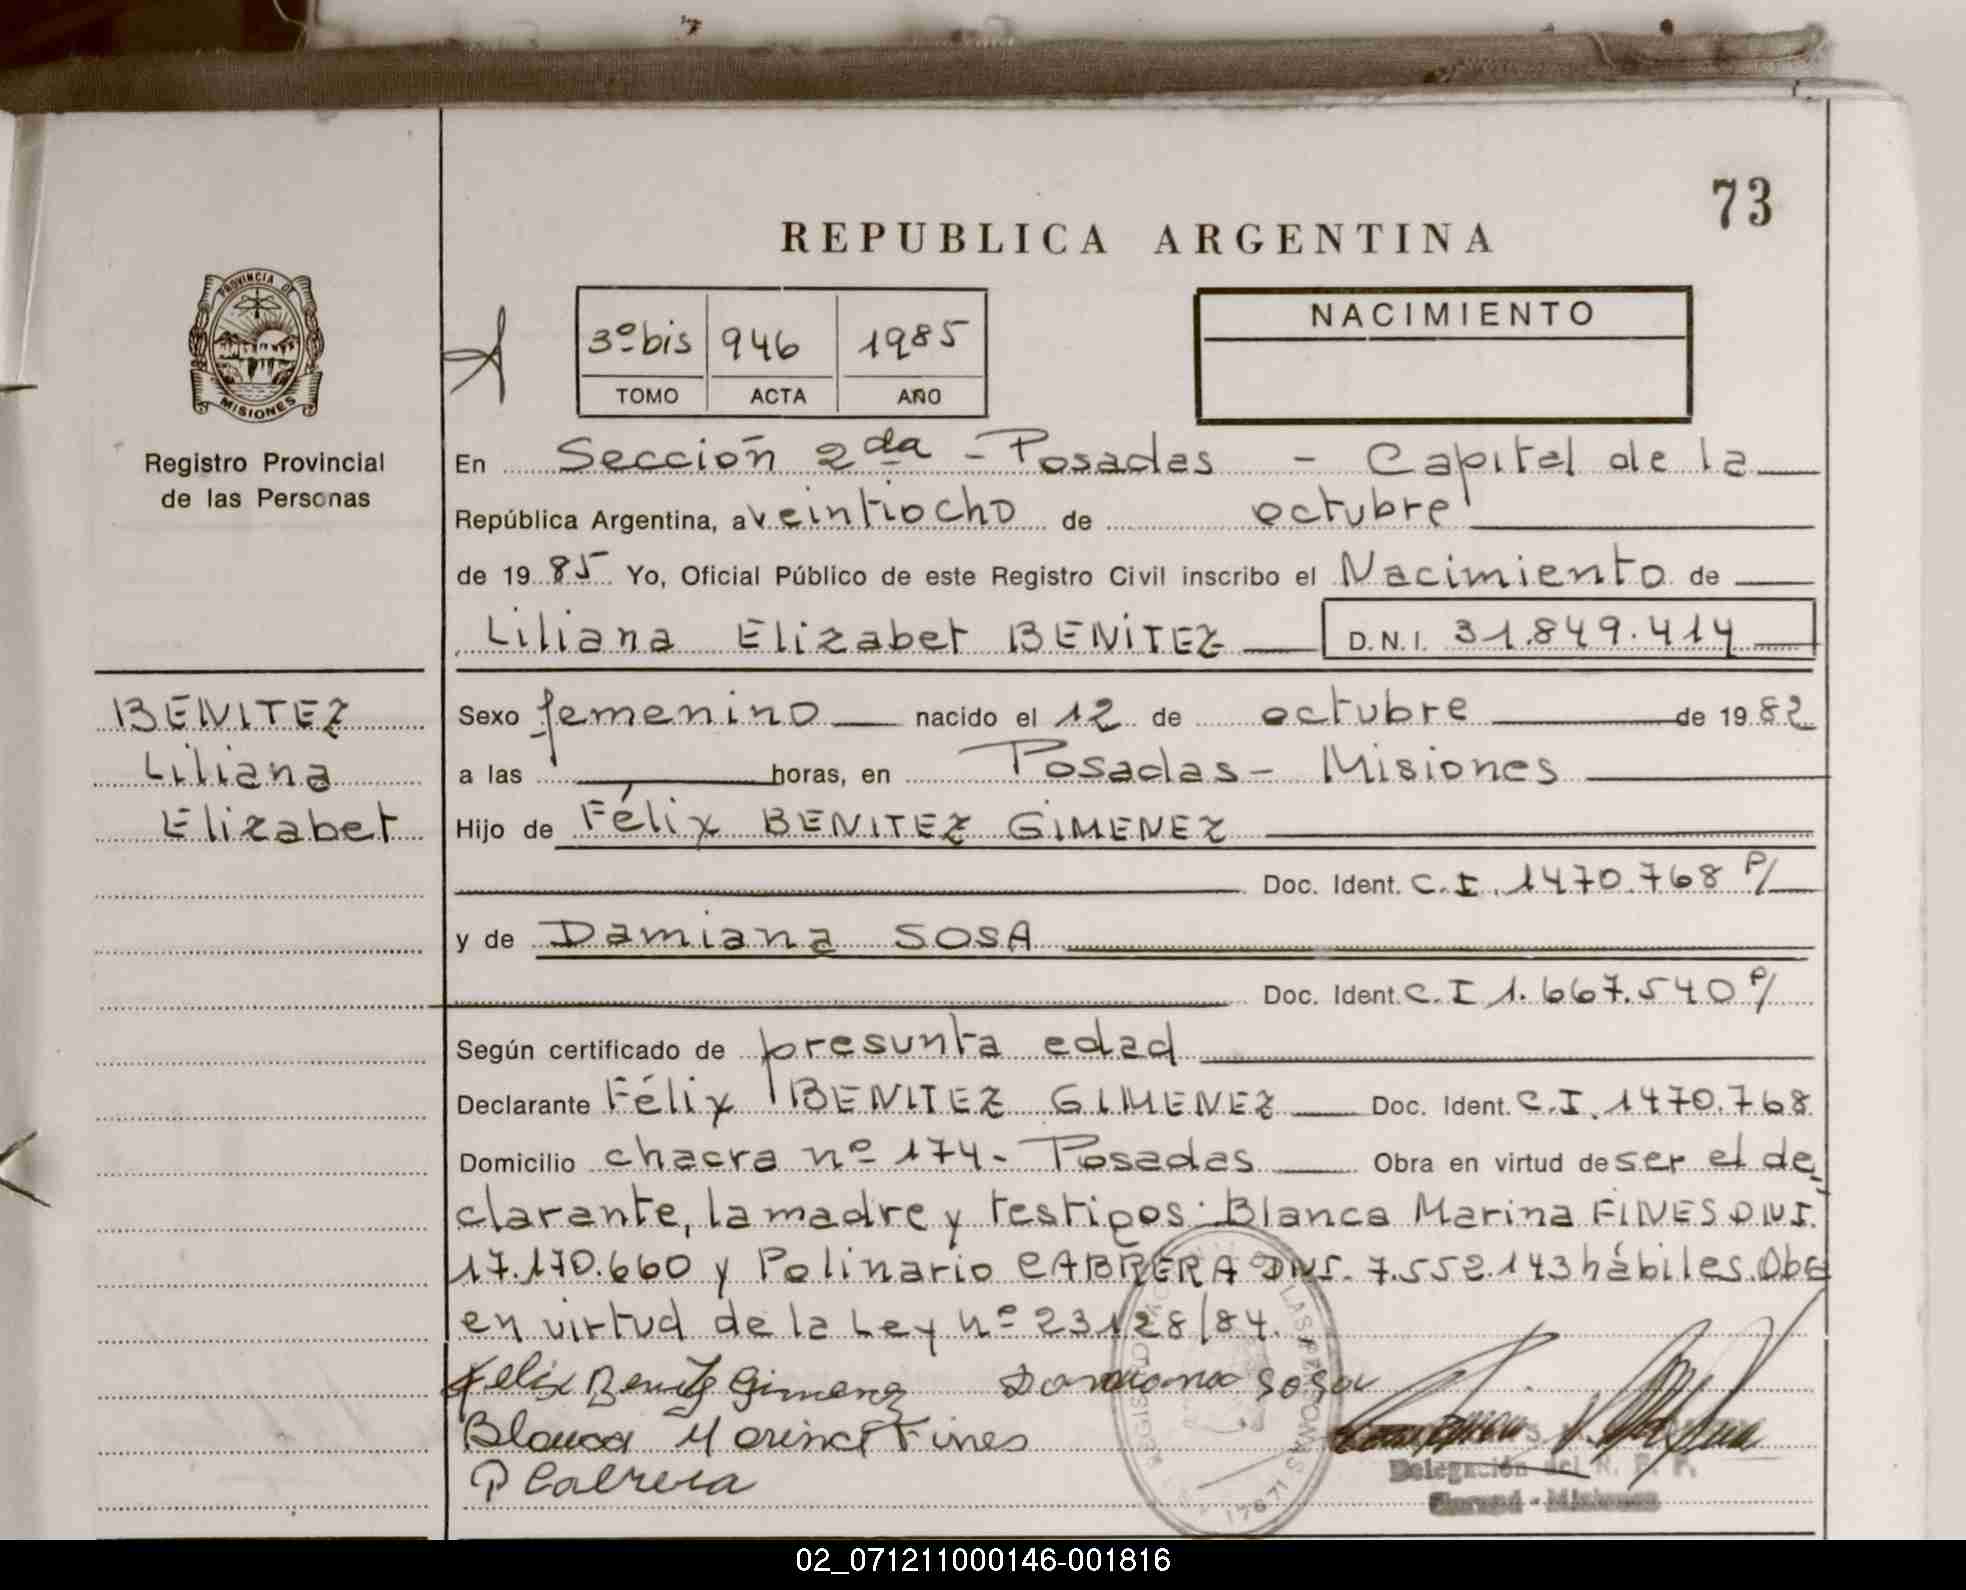 73
REPUBLICA ARGENTINA
PROVINCIA DE
MISIONES
Registro Provincial
de las Personas
3º bis 946 1985
TOMO ACTA AÑO
NACIMIENTO
En Sección 2da - Posadas - Capital de la
República Argentina, a veintiocho de octubre
de 1985 Yo, Oficial Público de este Registro Civil inscribo el Nacimiento de
Liliana Elizabet BENITEZ D.N.I. 31.849.414
BENITEZ
Liliana
Elizabet
Sexo femenino nacido el 12 de octubre de 1982
a las horas, en Posadas - Misiones
Hijo de Félix BENITEZ GIMENEZ
Doc. Ident. C.I. 1470.768 P/
y de Damiana SOSA
Doc. Ident. C.I 1.667.540 P/
Según certificado de presunta edad
Declarante Félix BENITEZ GIMENEZ Doc. Ident. C.I. 1470.768
Domicilio chacra nº 174 - Posadas Obra en virtud de ser el de
clarante, la madre y testigos: Blanca Marina FINES DNI.
17.170.660 y Polinario CABRERA DNI. 7.552.143 hábiles. Obra
en virtud de la Ley nº 23128/84.
Felix Benitez Gimenez Damiana Sosa
Blanca Marina Fines
P Cabrera
Delegación del R. P. P.
Misiones
02_071211000146-001816